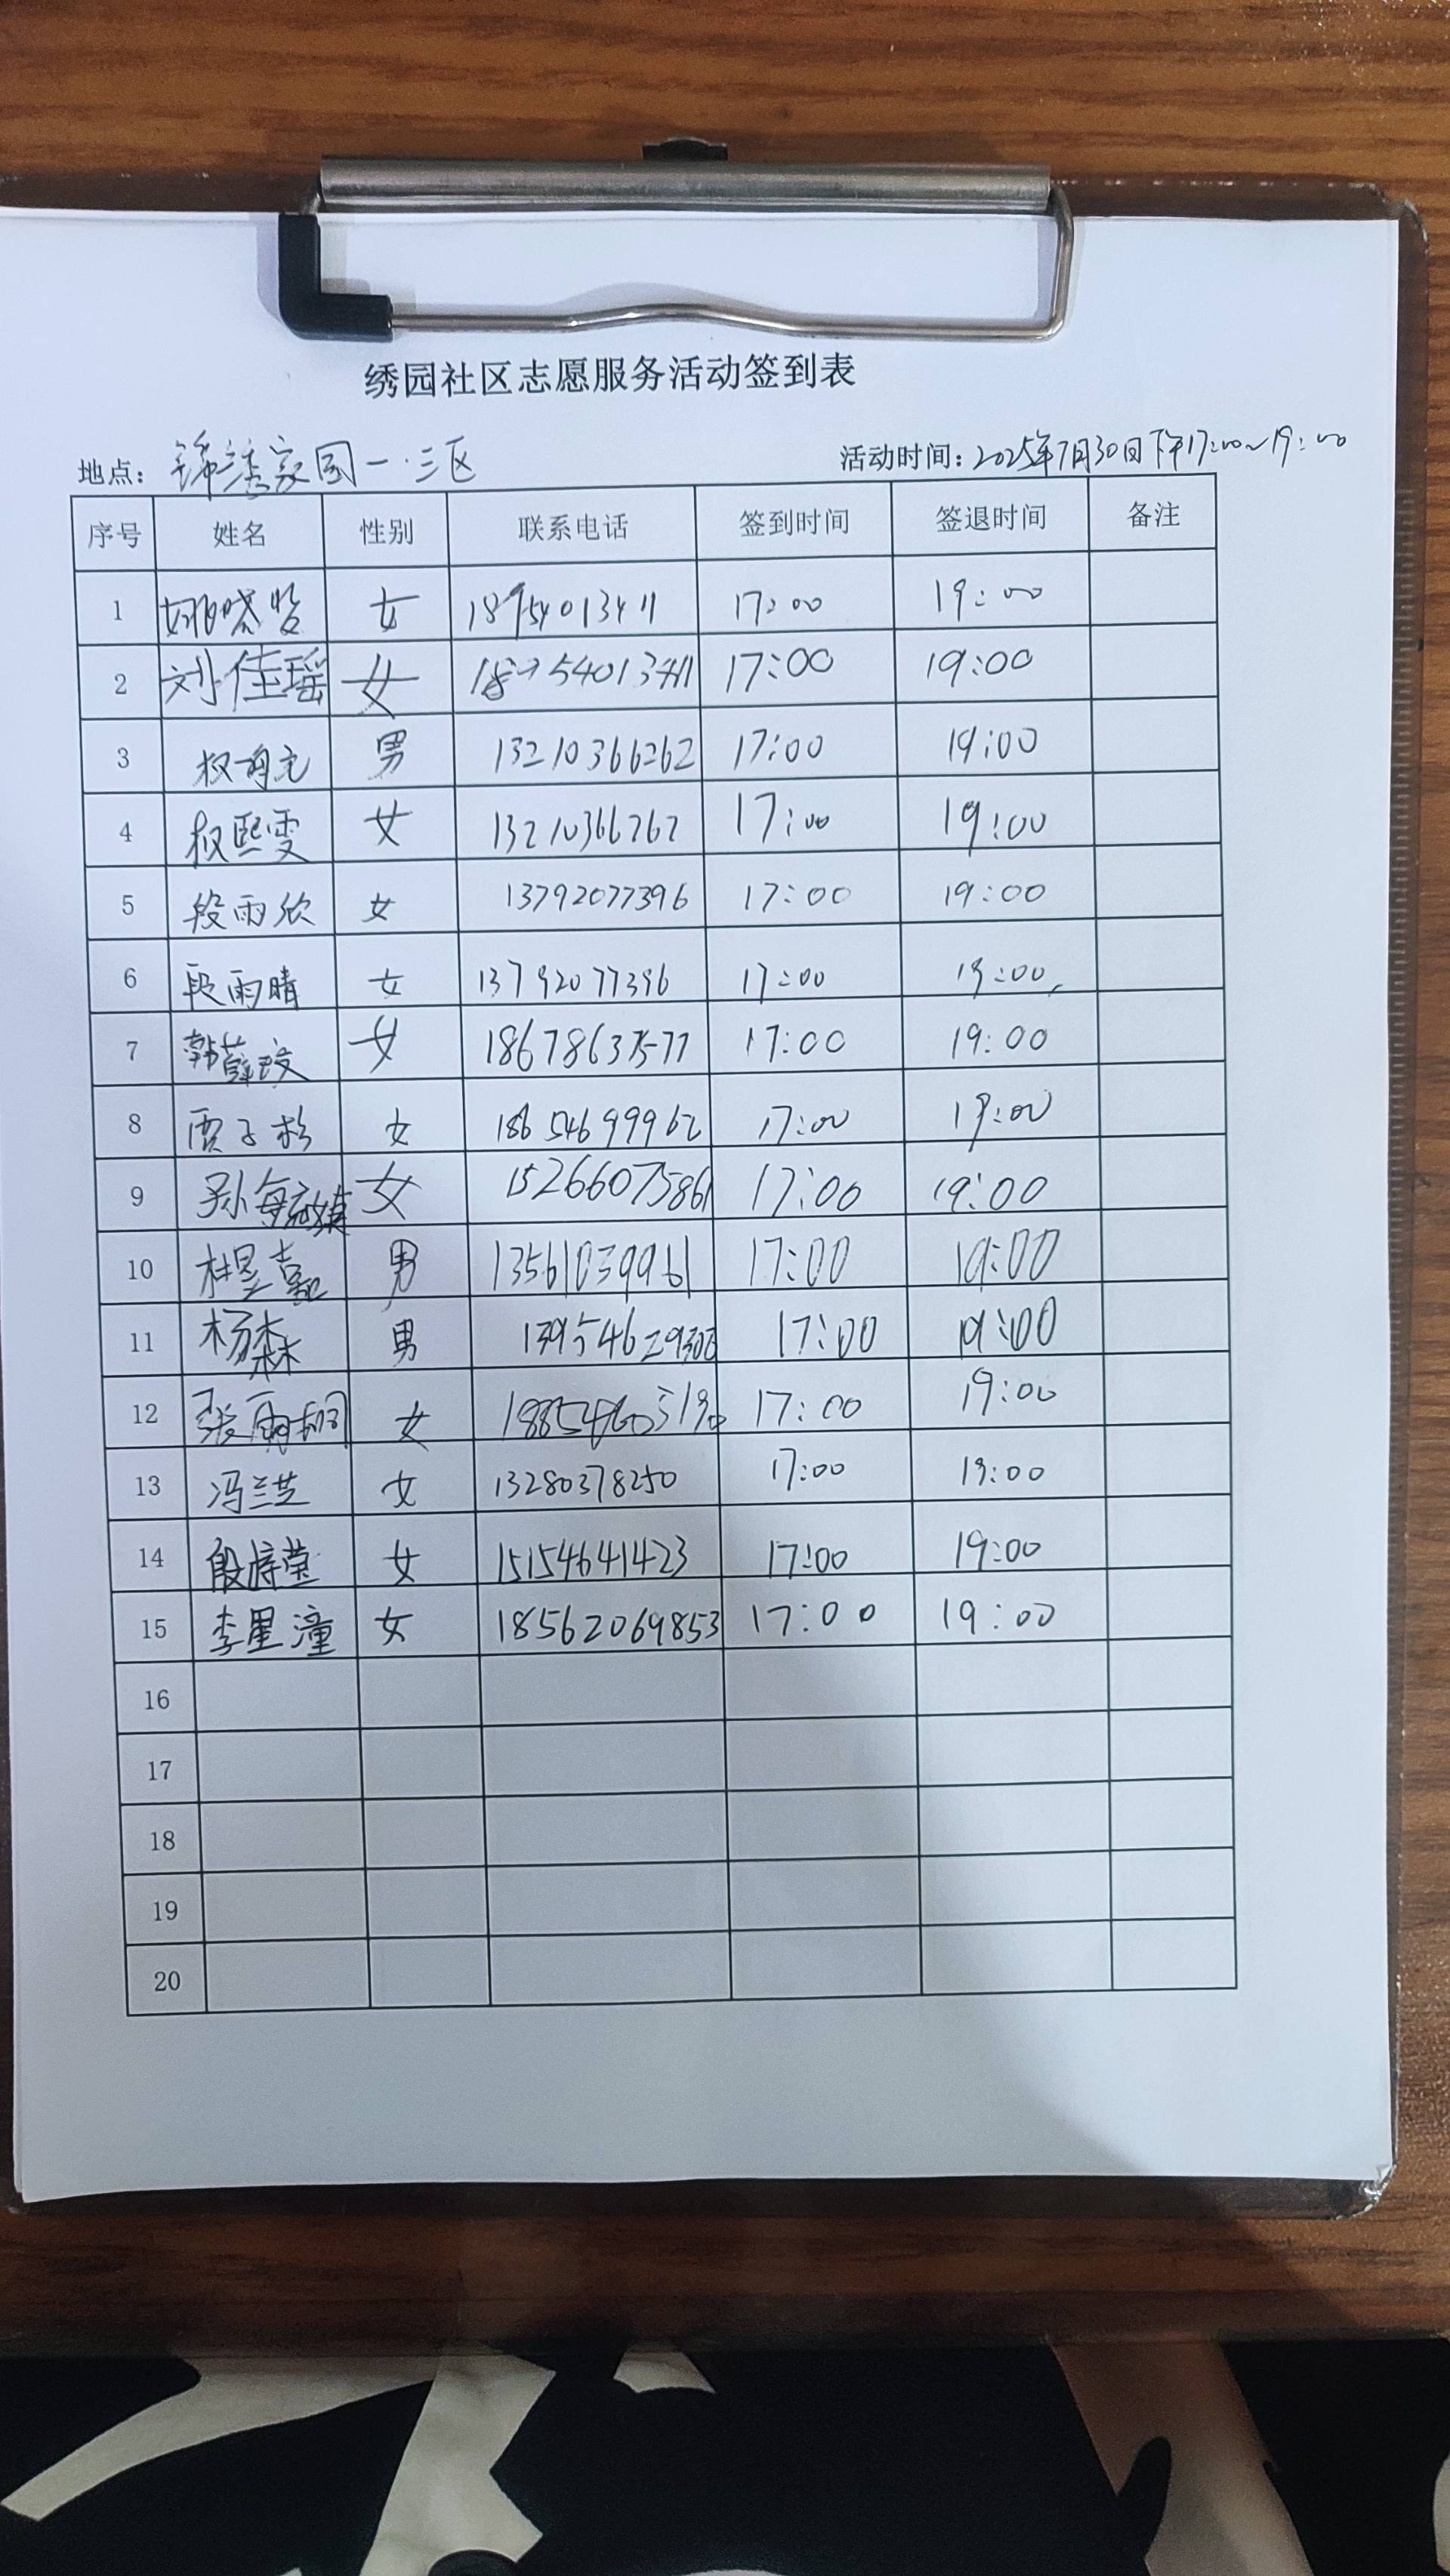 绣园社区志愿服务活动签到表
地点: 锦绣家园一·三区 活动时间: 2025年7月30日下午17:00~19:00
序号 姓名 性别 联系电话 签到时间 签退时间 备注
1 女 18954013411 17:00 19:00
2 刘佳瑶 女 18954013411 17:00 19:00
3 男 13210366262 17:00 19:00
4 权熙雯 女 13210366262 17:00 19:00
5 段雨欣 女 13792077396 17:00 19:00
6 段雨晴 女 13792077396 17:00 19:00
7 韩薛玟 女 18678637577 17:00 19:00
8 贾子杉 女 18654699962 17:00 19:00
9 女 15266075861 17:00 19:00
10 男 13561039961 17:00 19:00
11 杨森 男 17:00 19:00
12 张雨桐 女 17:00 19:00
13 冯兰芝 女 13280378250 17:00 19:00
14 殷梓萱 女 15154641423 17:00 19:00
15 李星潼 女 18562069853 17:00 19:00
16
17
18
19
20